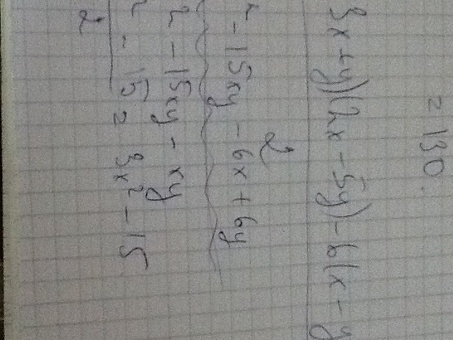 = 130.
3x + y)(2x - 5y) - 6(x - y
- 15xy - 6x + 6y
2
2 - 15xy - xy
2 - 15 = 3x² - 15
2